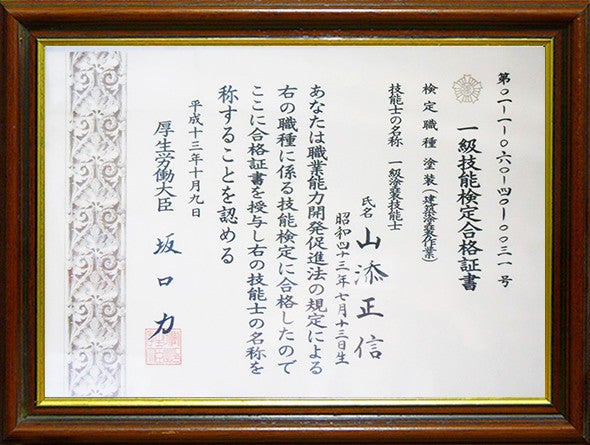 第０１-１-０６０-４０-００３１号
一級技能検定合格証書
検定職種 塗装(建築塗装作業)
技能士の名称 一級塗装技能士
氏名 山添正信
昭和四十三年七月十三日生
あなたは職業能力開発促進法の規定による
右の職種に係る技能検定に合格したので
ここに合格証書を授与し右の技能士の名称を
称することを認める
平成十三年十月九日
厚生労働大臣 坂口力